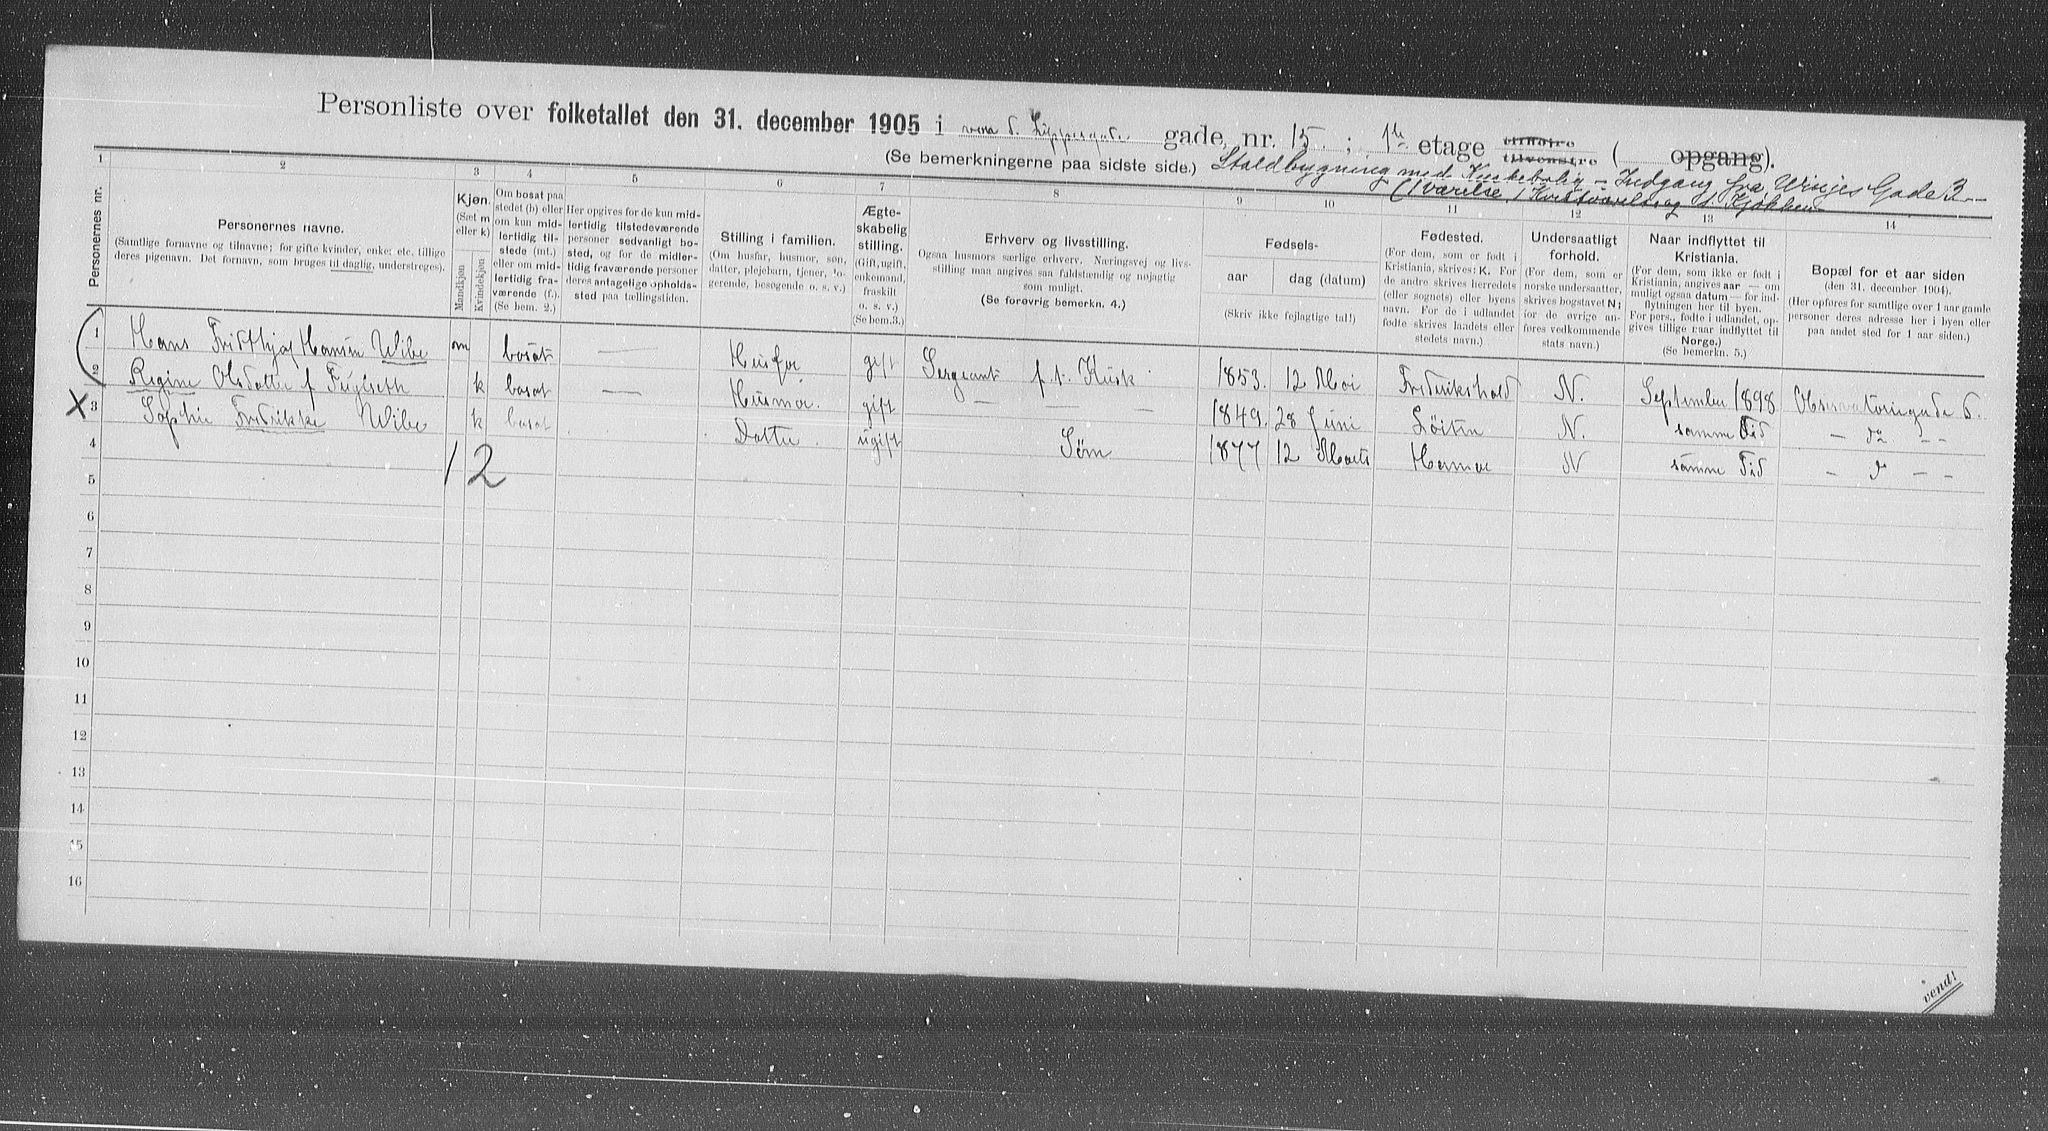 Personliste over folketallet den 31. december 1905 i gade, nr. 15. ; 1ste etage tilhøire tilvenstre ( opgang).
(Se bemerkningerne paa sidste side.) Staldbygning med Kuskebolig – Indgang fra Winjes Gade 3
(1 værelse, 1 Kvistværelse og 1 Kjøkken
1 2 3 4 5 6 7 8 9 10 11 12 13 14
Personernes nr.
Personernes navne.
(Samtlige fornavne og tilnavne; for gifte kvinder, enker etc. tillige deres pigenavn. Det fornavn, som bruges til daglig, understreges).
Kjøn.
(Sæt m eller k)
Mandkjøn
Kvindekjøn
Om bosat paa stedet (b) eller om kun midlertidig tilstede (mt.) eller om midlertidig fraværende (f.). (Se bem. 2.)
Her opgives for de kun midlertidig tilstedeværende personer sedvanligt bosted, og for de midlertidig fraværende personer deres antagelige opholdssted paa tællingstiden.
Stilling i familien.
(Om husfar, husmor, søn, datter, plejebarn, tjener, logerende, besøgende o. s. v.)
Ægteskabelig stilling.
(Gift, ugift, enkemand, fraskilt o. s. v.)
(Se bem. 3.)
Erhverv og livsstilling.
Ogsaa husmors særlige erhverv. Næringsvej og livsstilling maa angives saa fuldstændig og nøjagtig som muligt.
(Se forøvrig bemerkn. 4.)
Fødsels-
aar
dag (datum)
(Skriv ikke fejlagtige tal!)
Fødested.
(For dem, som er født i Kristiania, skrives: K. For de andre skrives herredets (eller sognets) eller byens navn. For de i udlandet fødte skrives landets eller stedets navn.)
Undersaatligt forhold.
(For dem, som er norske undersaatter, skrives bogstavet N; for de øvrige anføres vedkommende stats navn.)
Naar indflyttet til Kristiania.
(For dem, som ikke er født i Kristiania, angives aar — om muligt ogsaa datum — for indflytningen her til byen. For pers., fødte i udlandet, opgives tillige naar indflyttet til Norge.)
(Se bemerkn. 5.)
Bopæl for et aar siden
(den 31. december 1904).
(Her opføres for samtlige over 1 aar gamle personer deres adresse her i byen eller paa andet sted for 1 aar siden.)
1 Hans Fridthjof Hansen Wibe m bosat — Husfar gift Sergeant p. t. Kusk 1853. 12 Mai Fredrikshald N. September 1898 Observatoriegade 6.
2 Regine Olsdatter f Fuglseth k bosat — Husmor. gift — — — 1849. 28 Juni Løiten N. samme Tid — do — —
X 3 Sophie Fredrikke Wibe k bosat Datter. ugift Søm 1877 12 Marts Hamar N samme Tid — do — —
4 1 2
5
6
7
8
9
10
11
12
13
14
15
16
vend!